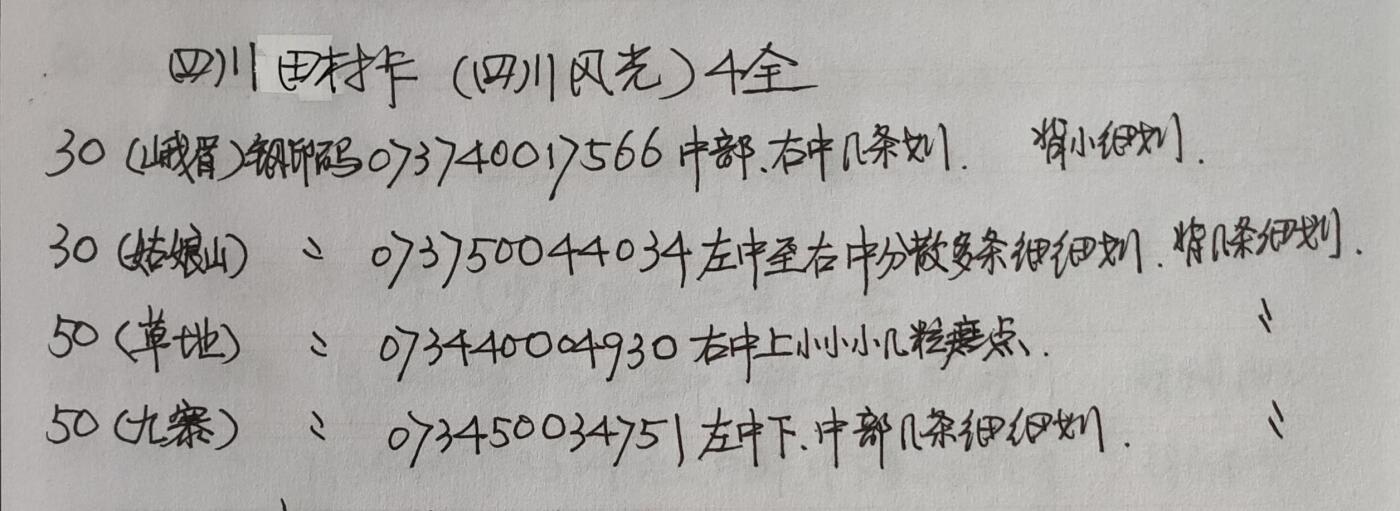 四川田村卡（四川风光）4全
30（峨眉）钢印码073740017566中部、右中几条划. 背小细划.
30（姑娘山） 〃 073750044034左中至右中分散多条细细划. 背几条细划.
50（草地） 〃 073440004930右中上小小小几粒磨点、. 〃
50（九寨） 〃 073450034751左中下、中部几条细细划. 〃